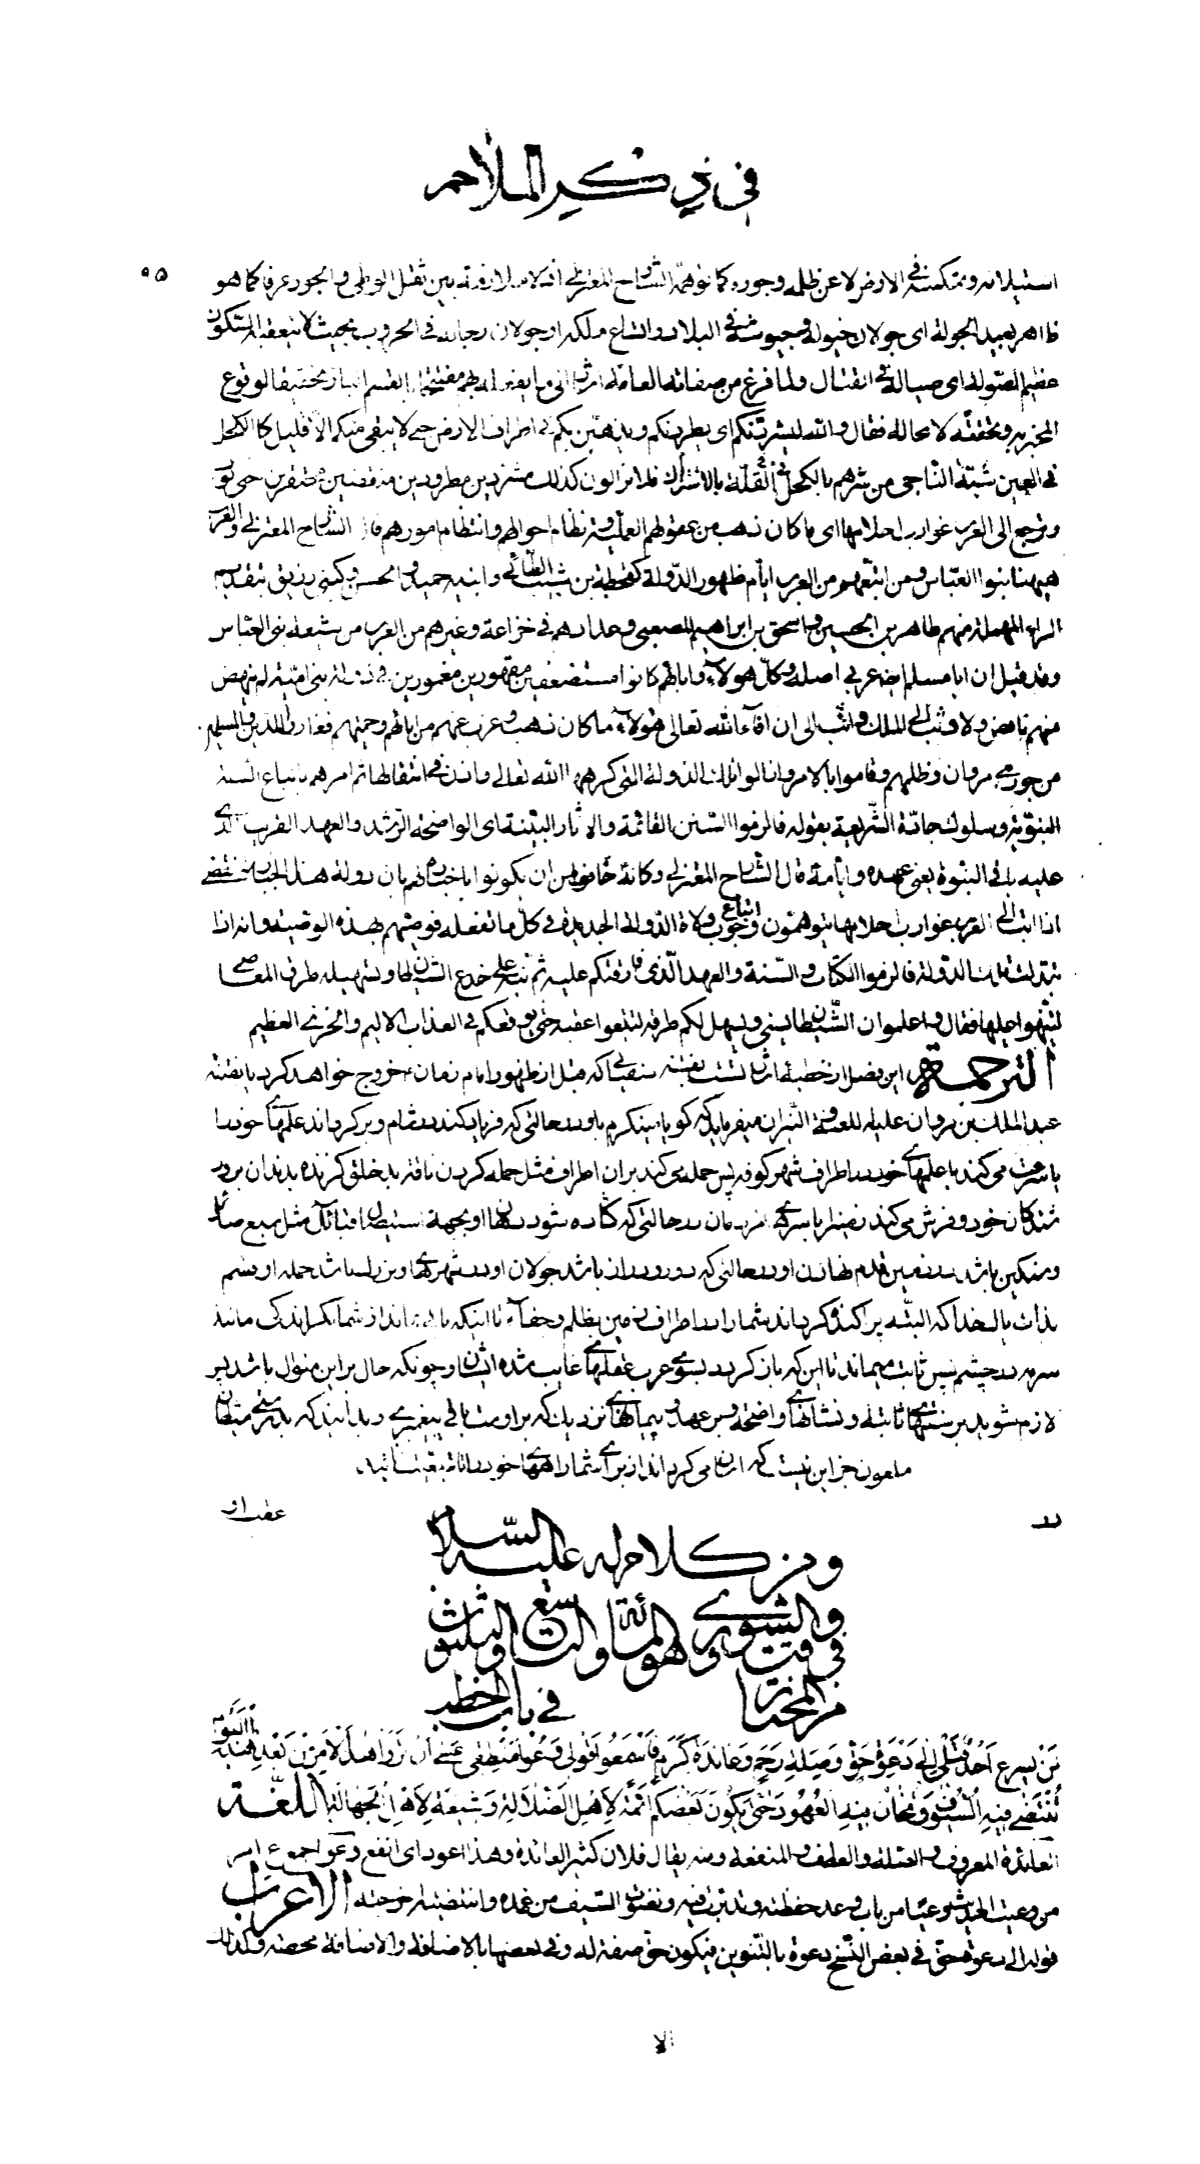 في ذكر الملاحم
٩٥
استيلائه وتمكنه في الارض لا عن ظلمه وجوره كما توهمه الشارح المعتزلي اذ لا ملازمة بين ثقل الوطي والجور عرفا كما هو
ظاهر بعيد الجولة اى جولان خيوله وجيوشه في البلاد واتساع ملكه او جولان رجاله في الحروب بحيث لا يتعقبه السكون
عظيم الصولة اى صياله في القتال ولما فرغ من صفاته العامة اشار الى ما يفعله بهم مفتتحا بالقسم البار تحقيقا لوقوع
المخبر به وتحققه لا محالة فقال والله ليشردنكم اى يطردنكم ويذهبن بكم في اطراف الارض حتى لا يبقى منكم الا قليل كالكحل
في العين شبه الناجى من شرهم بالكحل في القلة بالاشتراك فلا تزالون كذلك مشردين مطرودين منقصين محتقرين حتى تؤب
وترجع الى العرب عوازب احلامها اى ما كان ذهب من عقولهم العملية ونظام احوالهم وانتظام امورهم قال الشارح المعتزلي والعرب
ههنا بنو العباس ومن اتبعهم من العرب ايام ظهور الدولة كقحطبة بن شبيب الطائي وابنيه حميد والحسن وكبني رزيق بتقديم
الراء المهملة منهم طاهر بن الحسين واسحق بن ابراهيم المصعبي وعدادهم في خزاعة وغيرهم من العرب من شيعة بني العباس
وقد قيل ان ابا مسلم ايضا عربي اصله وكل هؤلاء وآبائهم كانوا مستضعفين مقهورين مغمورين في دولة بني امية لم ينهض
منهم ناهض ولا وثب الى الملك واثب الى ان افاء الله تعالى هؤلاء ما كان ذهب وعزب عنهم من ابائهم وحميتهم فغاروا للدين والمسلمين
من جور بني مروان وظلمهم وقاموا بالامر وازالوا تلك الدولة التي كرهها الله تعالى واذن في انتقالها ثم امرهم باتباع السنة
النبوية وسلوك جادة الشريعة بقوله فالزموا السنن القائمة والاثار البينة اى الواضحة الرشد والعهد القريب الذى
عليه باقي النبوة يعنى عهده وايامه قال الشارح المعتزلي وكانه خاف من ان يكونوا باخباره لهم بان دولة هذا الجبار ستنقضى
اذا ابت الى العرب عوازب احلامها يتوهمون وجوب اتباع ولاة الدولة الجديدة في كل ما تفعله فوصيهم بهذه الوصية وانه اذا
تبدلت تلك الدولة فالزموا الكتاب والسنة والعهد الذى فارقتكم عليه ثم نبه على خدع الشيطان وتسهيله طرق المعاصى
لينتبهوا عليها فقال واعلموا ان الشيطان انما يسنى ويسهل لكم طرقه لتتبعوا عقبه حتى يوقعكم في العذاب الاليم والخزى العظيم
الترجمة اين فصل از خطبه اشارتست بفتنه سفياني كه قبل از ظهور امام زمان خروج خواهد كرد يا بفتنه
عبد الملك بن مروان عليه اللعنة والنيران ميفرمايد كه كويا مى نكرم باو در حالتى كه فرياد كند در شام وبر كرداند علمهاى خود را
يا سرعت مى كند با علمهاى خود در اطراف شهر كوفه پس حمله مى كند بر آن اطراف مثل حمله كردن ناقه بدخلق كزنده بدندان بر دو
شندكان خود و فرش مى كند زمين را با سرهاى مردمان در حالتى كه كشاده شود دهان او بجهة استيصال قبائل مثل سبع صائل
وسنكين باشد در زمين قدم نهادن او در حالتى كه دور ودراز باشد جولان او در شهرها وبزرك باشد حمله او قسم
بذات پاك خدا كه البته پراكنده كرداند شما را در اطراف زمين بظلم وجفا تا اينكه باقى نماند از شما مكر اندكى مانند
سرمه در چشم پس ثابت ميماند تا اين كه باز كردد بسوى عرب عقلهاى غايب شده ايشان و چونكه حال بر اين منوال باشد پس
لازم شويد بر سنتهاى ثابته ونشانهاى واضحه وبر عهد وپيمانهاى نزديك كه بر اوست باقى پيغمبرى وبدانيد كه بدرستى شيطان
ملعون جز اين نيست كه آسان مى كرداند از براى شما راههاى خود را تا تبعيت نمائيد
در
عقب او
ومن كلام له عليه السلام
في وقت الشورى وهو المائة والتاسع والثلثون
من المختار في باب الخطب
لَنْ يُسرِعَ اَحَدٌ قَبْلي اِلى دَعْوَةِ حَقٍّ وَصِلَةِ رَحِمٍ وَعائِدَةِ كَرَمٍ فَاسْمَعُوا قَوْلي وَعُوا مَنْطِقي عَسى اَنْ تَرَوْا هٰذَا الْاَمْرَ مِنْ بَعْدِ هٰذَا الْيَوْمِ
تُنْتَضى فيهِ السُّيُوفُ وَتُخانُ فيهِ الْعُهُودُ حَتّى يَكُونَ بَعْضُكُمْ اَئِمَّةً لِاَهْلِ الضَّلالَةِ وَشيعَةً لِاَهْلِ الْجَهالَةِ اللغة
العائدة المعروف والصلة والعطف والمنفعة ومنه يقال فلان كثير العائدة وهذا اعود اى انفع وعوا جمع ع امر
من وعيت الحديث وعيا من باب وعد حفظته وتدبرت فيه ونضوت السيف من غمده وانتضيته اخرجته الاعراب
قوله الى دعوة حق في بعض النسخ دعوة بالتنوين فيكون حق صفة له وفي بعضها بالاضافة والاضافة محضة وكذلك
الا